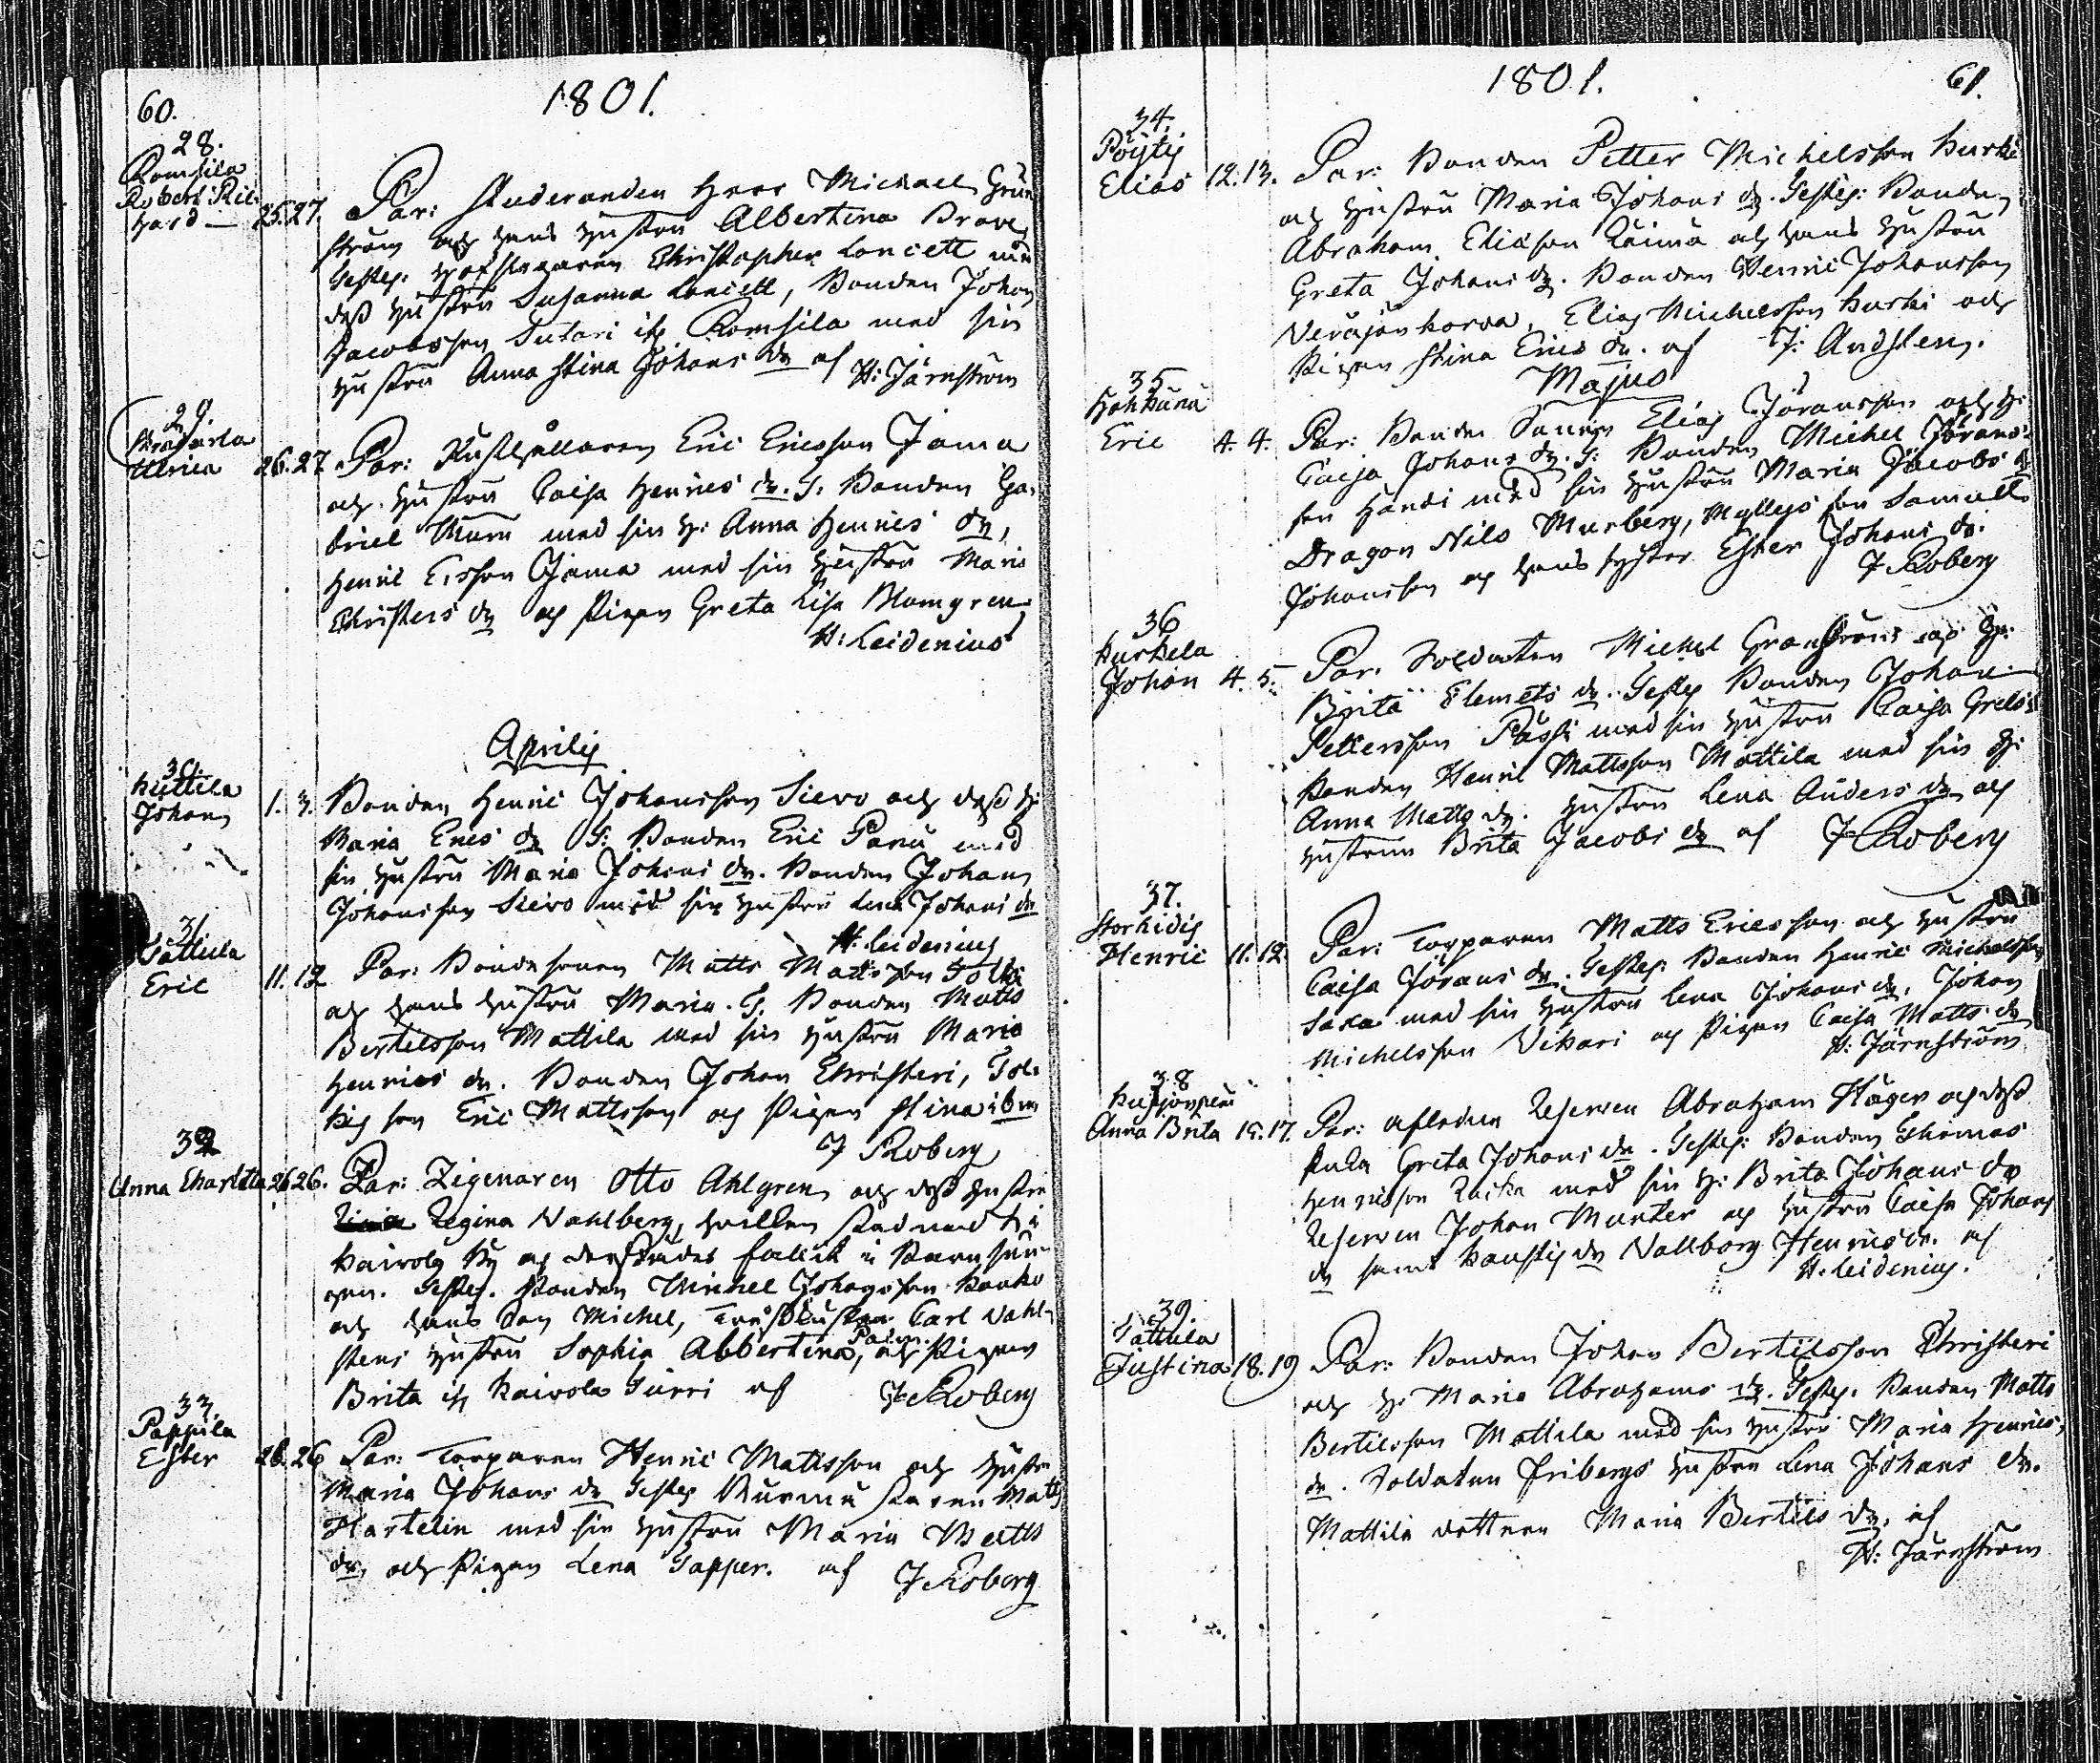 60.
1801.
28.
Romsila
Robert Rit-
hard — 25. 27. Par: Studeranden Herr Michael Grön
ström och hans hustru Albertina Brave
Testes: Christopher Loncelt
dess hustru Susanna Loncelt, bonden Johan
Jacobsson Sutari if: Romsila med sin
hustru Anna Stina Johans dr af H: Järnström
29.
Ulrica 26. 27. Par: Rusthållaren Eric Ericsson Jama
och hustru Caisa Henrics dr. T: bonden Ga-
briel med sin h: Anna Henrics dr,
Henric Ersson Jama med sin hustru Maria
Christers dr och pigan Greta Lisa Blomgren
H: Leidenius
Aprilis
30.
Kuttila
Johan 1. 3. Bonden Henric Johansson Sievo och dess h:
Maria Erics dr T: bonden Eric Panu med
sin hustru Maria Johans dr. bonden Johan
Johansson Sievo med sin hustru Lena Johans dr
H: Leidenius
31.
Tattula
Eric 11. 12 Par: Bondesonen Matts Mattsson Tolki
och hans hustru Maria. T. bonden Matts
Bertilsson Mattila med sin hustru Maria
Henrics dr. bonden Johan Christeri, Tol-
kis son Eric Mattsson och pigan Stina ibm
J Roberg
32
Anna Charlotta 26 26. Par: Zigenaren Otto Ahlgren och dess hustru
Regina Vahlberg, hvilken stadnad i
Kairola by och derstädes fallit i barnsän-
gen. Testes. bonden Michel Johansson Kauko
och hans son Michel, Carl Vahl-
stens hustru Sophia Albertina, och pigan
Brita if: Kairola Turri af J Roberg
33.
Pappila
Ester 26. 26 Par: Torparen Henric Mattsson och hustru
Maria Johans dr Testes Matts
Hartelin med sin hustru Maria Matts
dr, och pigan Lena Tapper. af J Roberg
1801.
61.
34.
Pöytis
Elias 12. 13. Par: Bonden Petter Michelsson Kurki
och hustru Maria Johans dr. Testes: bonden
Abraham Eliasson Räimä och hans hustru
Greta Johans dr. bonden Henric Johansson
Veräjänkorva, Elias Michelsson Kurki och
pigan Stina Erics dr. af J: Andsten.
Majus
35
Eric 4. 4. Par: bonde Sonen Elias Jöransson och h:
Caisa Johans dr. T: bonden Michel Jörans-
son Handi med sin hustru Maria Jacobs dr
Dragon Nils Murberg, Myllys son Samuel
Johansson och hans syster Ester Johans dr.
J Roberg
36
Kurkela
Johan 4. 5. Par: Soldaten Michel Granström och h:
Brita Clemets dr. Testes bonden Johan
Pettersson Pässi med sin hustru Caisa Grels:
bonden Henric Mattsson Mattila med sin h:
Anna Matts dr. hustru Lena Anders dr och
hustrun Brita Jacobs dr af J Roberg
37.
Storhidis
Henric 11. 12. Par: Torparen Matts Ericsson och hustru
Caisa Jörans dr. Testes: bonden Henric Michelsson
Saxa med sin hustru Lena Johans dr, Johan
Michelsson Vikari och pigan Caisa Matts dr
H: Järnström
38
Anna Brita 15. 17. Par: afledne Reserven Abraham Häger och dess
Enka Greta Johans dr. Testes: bonden Thomas
Henricsson med sin h: Brita Johans dr
Reserven Johan Munter och hustru Caisa Johans
dr samt dr Vallborg Henrics dr. af
H: Leidenius.
39.
Tattula
Justina 18. 19 Par: Bonden Johan Bertilsson Christeri
och h: Maria Abrahams dr. Testes. bonden Matts
Bertilsson Mattila med sin hustru Maria Henrics
dr. Soldaten Fribergs hustru Lena Johans dr.
Mattila dottren Maria Bertils dr. af
H: Järnström